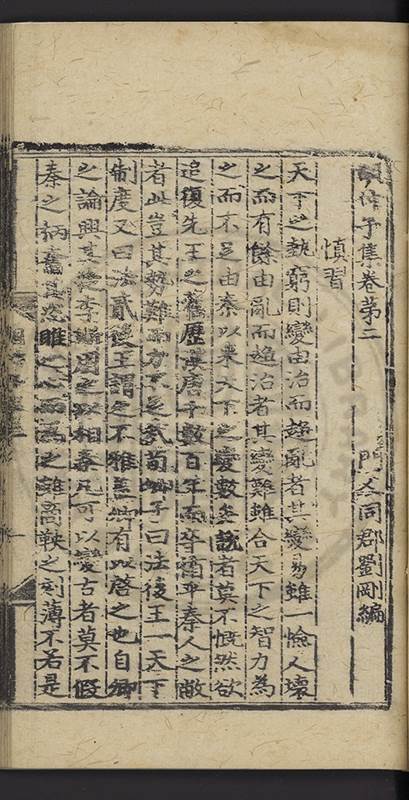 胡仲子集卷第二　門人同郡劉剛編
慎習
天下之埶窮則變由治而趨亂者其變易雖一憸人壞
之而有餘由亂而趨治者其變難雖合天下之智力為
之而不足由秦以來天下之變數矣說者莫不慨然欲
追復先王之舊歷漢唐千數百年而卒循乎秦人之敝
者此豈其勢難而力不足哉荀卿子曰法後王一天下
制度又曰法貳後王謂之不雅蓋卿有以啓之也自卿
之論興其後李斯用之以相秦凡可以變古者莫不假
秦之柄奮其恣睢之心而為之雖商鞅之刻薄不若是